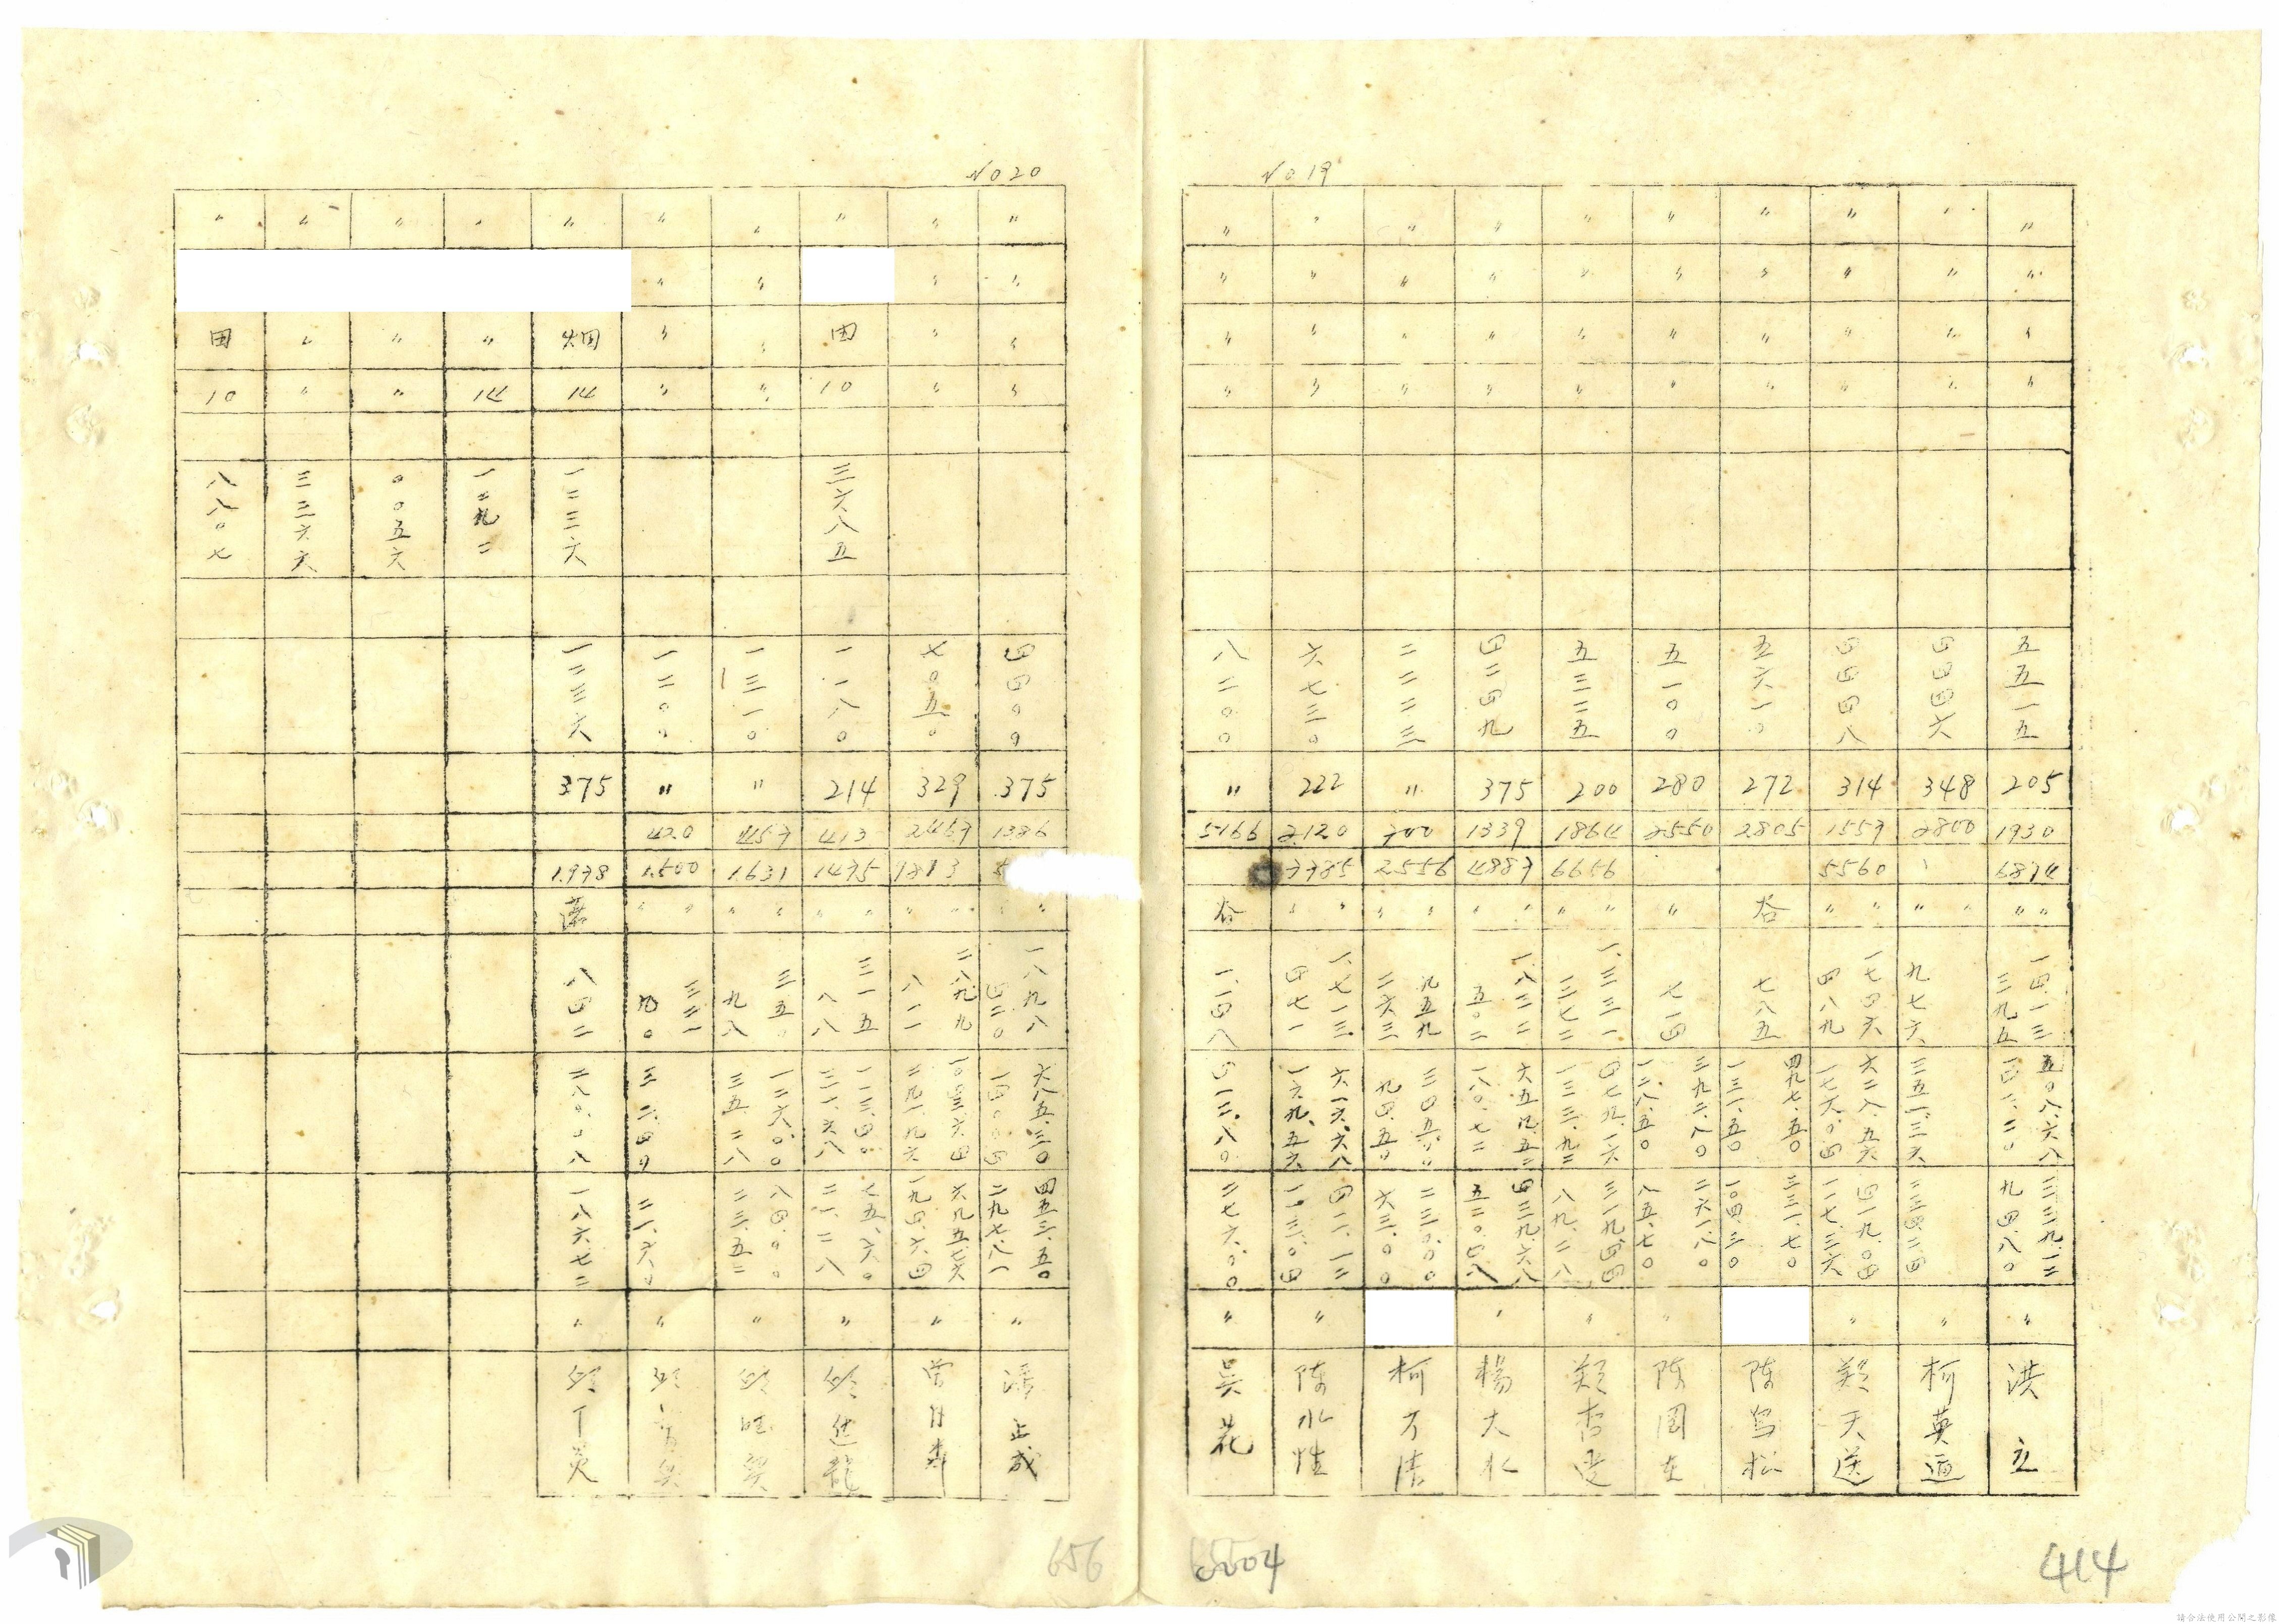 NO 19
〃 〃 〃 〃 五五一五 205 1930 6874 〃〃 一四一三 三九五 五〇八.六八 一四二.二〇 三三九.一二 九四.八〇 〃 洪立
〃 〃 〃 〃 四四四六 348 2800 〃〃 九七六 三五一.三六 二三四.二四 〃 柯英
〃 〃 〃 〃 四四四八 314 1557 5560 〃〃 一七四六 四八九 六二八.五六 一七六.〇四 四一九.〇四 一一七.三六 〃 鄭天送
〃 〃 〃 〃 五六一〇 272 2805 答 七八五 四九七.五〇 一三一.五〇 三三一.七〇 一〇四.三〇 陳鳥松
〃 〃 〃 〃 五一〇〇 280 2550 〃 七一四 三九二.八〇 一二八.五〇 二六一.八〇 八五.七〇 〃 陳國在
〃 〃 〃 〃 五三二五 200 1864 6656 〃〃 一.三三一 三七二 四七九.一六 一三三.九二 三一九.四四 八九.二八 〃 鄭杏
〃 〃 〃 〃 四二四九 375 1339 4887 〃〃 一.八三二 五〇二 六五九.五二 一八〇.七二 四三九.六八 五二〇.四八 〃 楊大水
〃 〃 〃 〃 二二二三 〃 700 2556 〃〃 九五九 二六三 三四五.〇〇 九四.五〇 二三〇.〇〇 六三.〇〇 柯方清
〃 〃 〃 〃 六七三〇 222 2120 7785 〃〃 一.七一三 四七一 六一六.六八 一六九.五六 四一一.一二 一一三.〇四 〃 陳水性
〃 〃 〃 〃 八二〇〇 〃 5166 答 一.一四八 四一三.八〇 二七六.〇〇 〃 吳花
NO 20
〃 〃 〃 〃 四四〇〇 375 1386 〃〃 一八九八 四二〇 六八五.三〇 一四〇.〇四 四五三.五〇 二九七.八一 〃 正成
〃 〃 〃 〃 七〇五〇 329 2467 9813 〃〃 二八九九 八一一 一〇四三.六四 二九一.九六 六九五.七六 一九四.六四 〃
〃 田 10 三六八五 一一八〇 214 413 1475 〃〃 三一五 八八 一一三.四〇 三一.六八 七五.六〇 二一.二八 〃 進龍
〃 〃 〃 〃 一三一〇 〃 457 1.631 〃〃 三五〇 九八 一二六.〇〇 三五.二八 八四.〇〇 二三.五二 〃 旺
〃 〃 〃 〃 一二〇〇 〃 420 1.500 〃〃 三二一 九〇 三二.四〇 二一.六〇 〃
〃 畑 14 一二三六 一二三六 375 1.978 蕃 八四二 二八〇.〇八 一八六.七二 〃 丁炎
〃 〃 14 一二九二
〃 〃 〃 〇〇五六
〃 〃 〃 三三六六
〃 田 10 八八〇七
656
004
414
請合法使用公開之影像